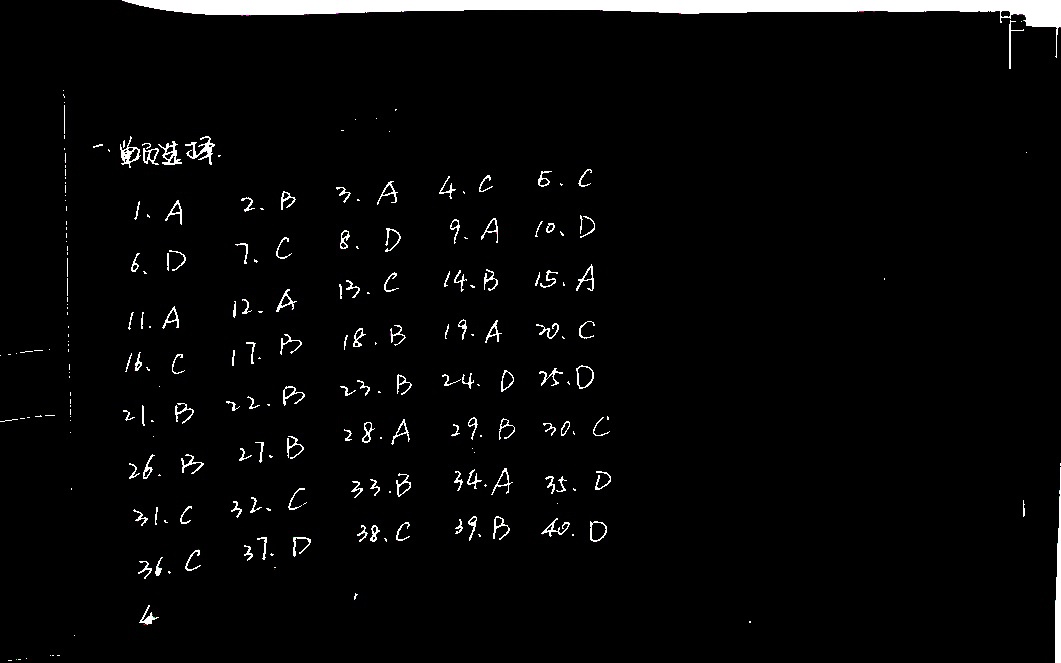 一. 单项选择.
1. A 2. B 3. A 4. C 5. C
6、D 7、C 8、D 9、A 10、D
11. A 12. A 13. C 14. B 15. A
16. C 17. B 18. B 19. A 20. C
21. B 22. B 23. B 24. D 25. D
26. B 27. B 28. A 29. B 30. C
31. C 32. C 33. B 34. A 35. D
36. C 37. D 38. C 39. B 40. D
4